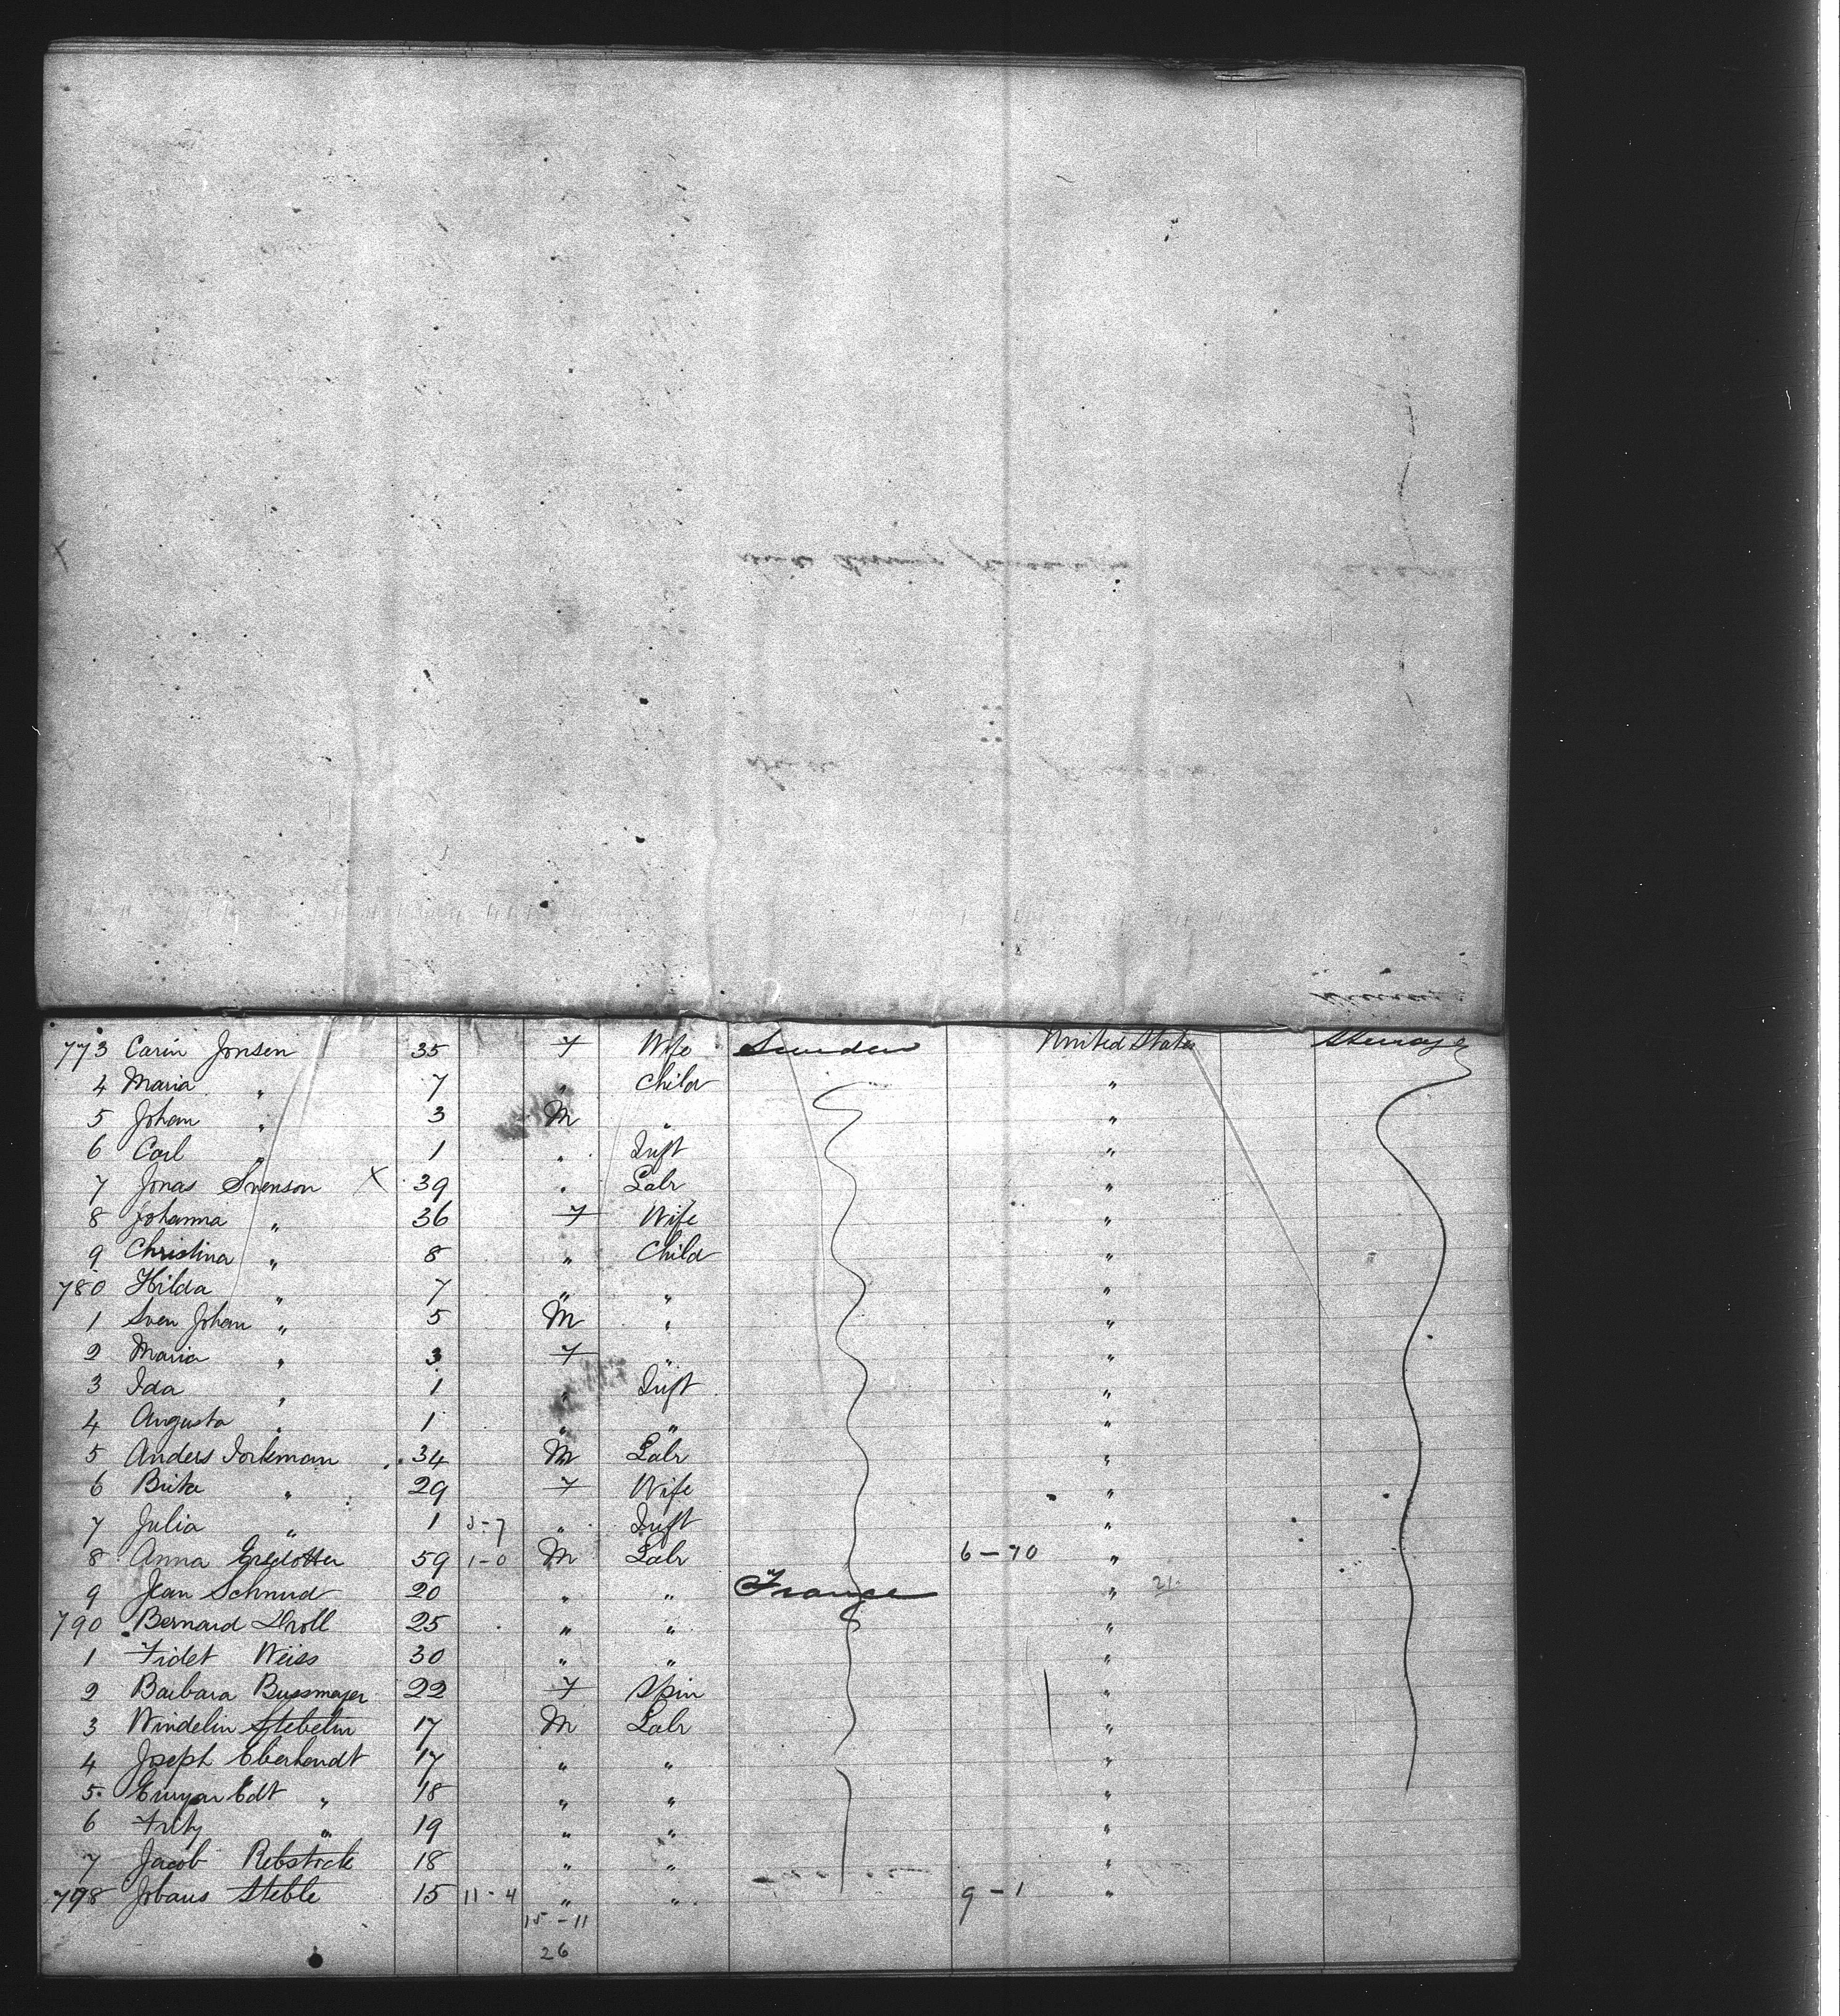 773 Carin Jonsen 35 F Wife Sweden United States Steerage
4 Maria " 7 " Child "
5 Johan " 3 M " "
6 Carl " 1 " Inft "
7 Jonas Svenson X 39 " Labr "
8 Johanna " 36 F Wife "
9 Christina " 8 " Child "
780 Hilda " 7 " " "
1 Sven Johan " 5 M " "
2 Maria " 3 F " "
3 Ida " 1 " Inft "
4 Augusta " 1 " " "
5 Anders Jorkman 34 M Labr "
6 Brita " 29 F Wife "
7 Julia " 1 " Inft "
8 Anna 59 1-0 M Labr 6-10 "
9 Jean Schmid 20 " " France " 21
790 Bernard Droll 25 " " "
1 Fidet Weiss 30 " " "
2 Barbara Bussmayer 22 F Spin "
3 Windelin Stebelin 17 M Labr "
4 Joseph Eberhendt 17 " " "
5 " 18 " " "
6 Fritz " 19 " " "
7 Jacob Rebstock 18 " " "
798 Johans Steble 15 11-4 " " 9-1 "
15-11
26